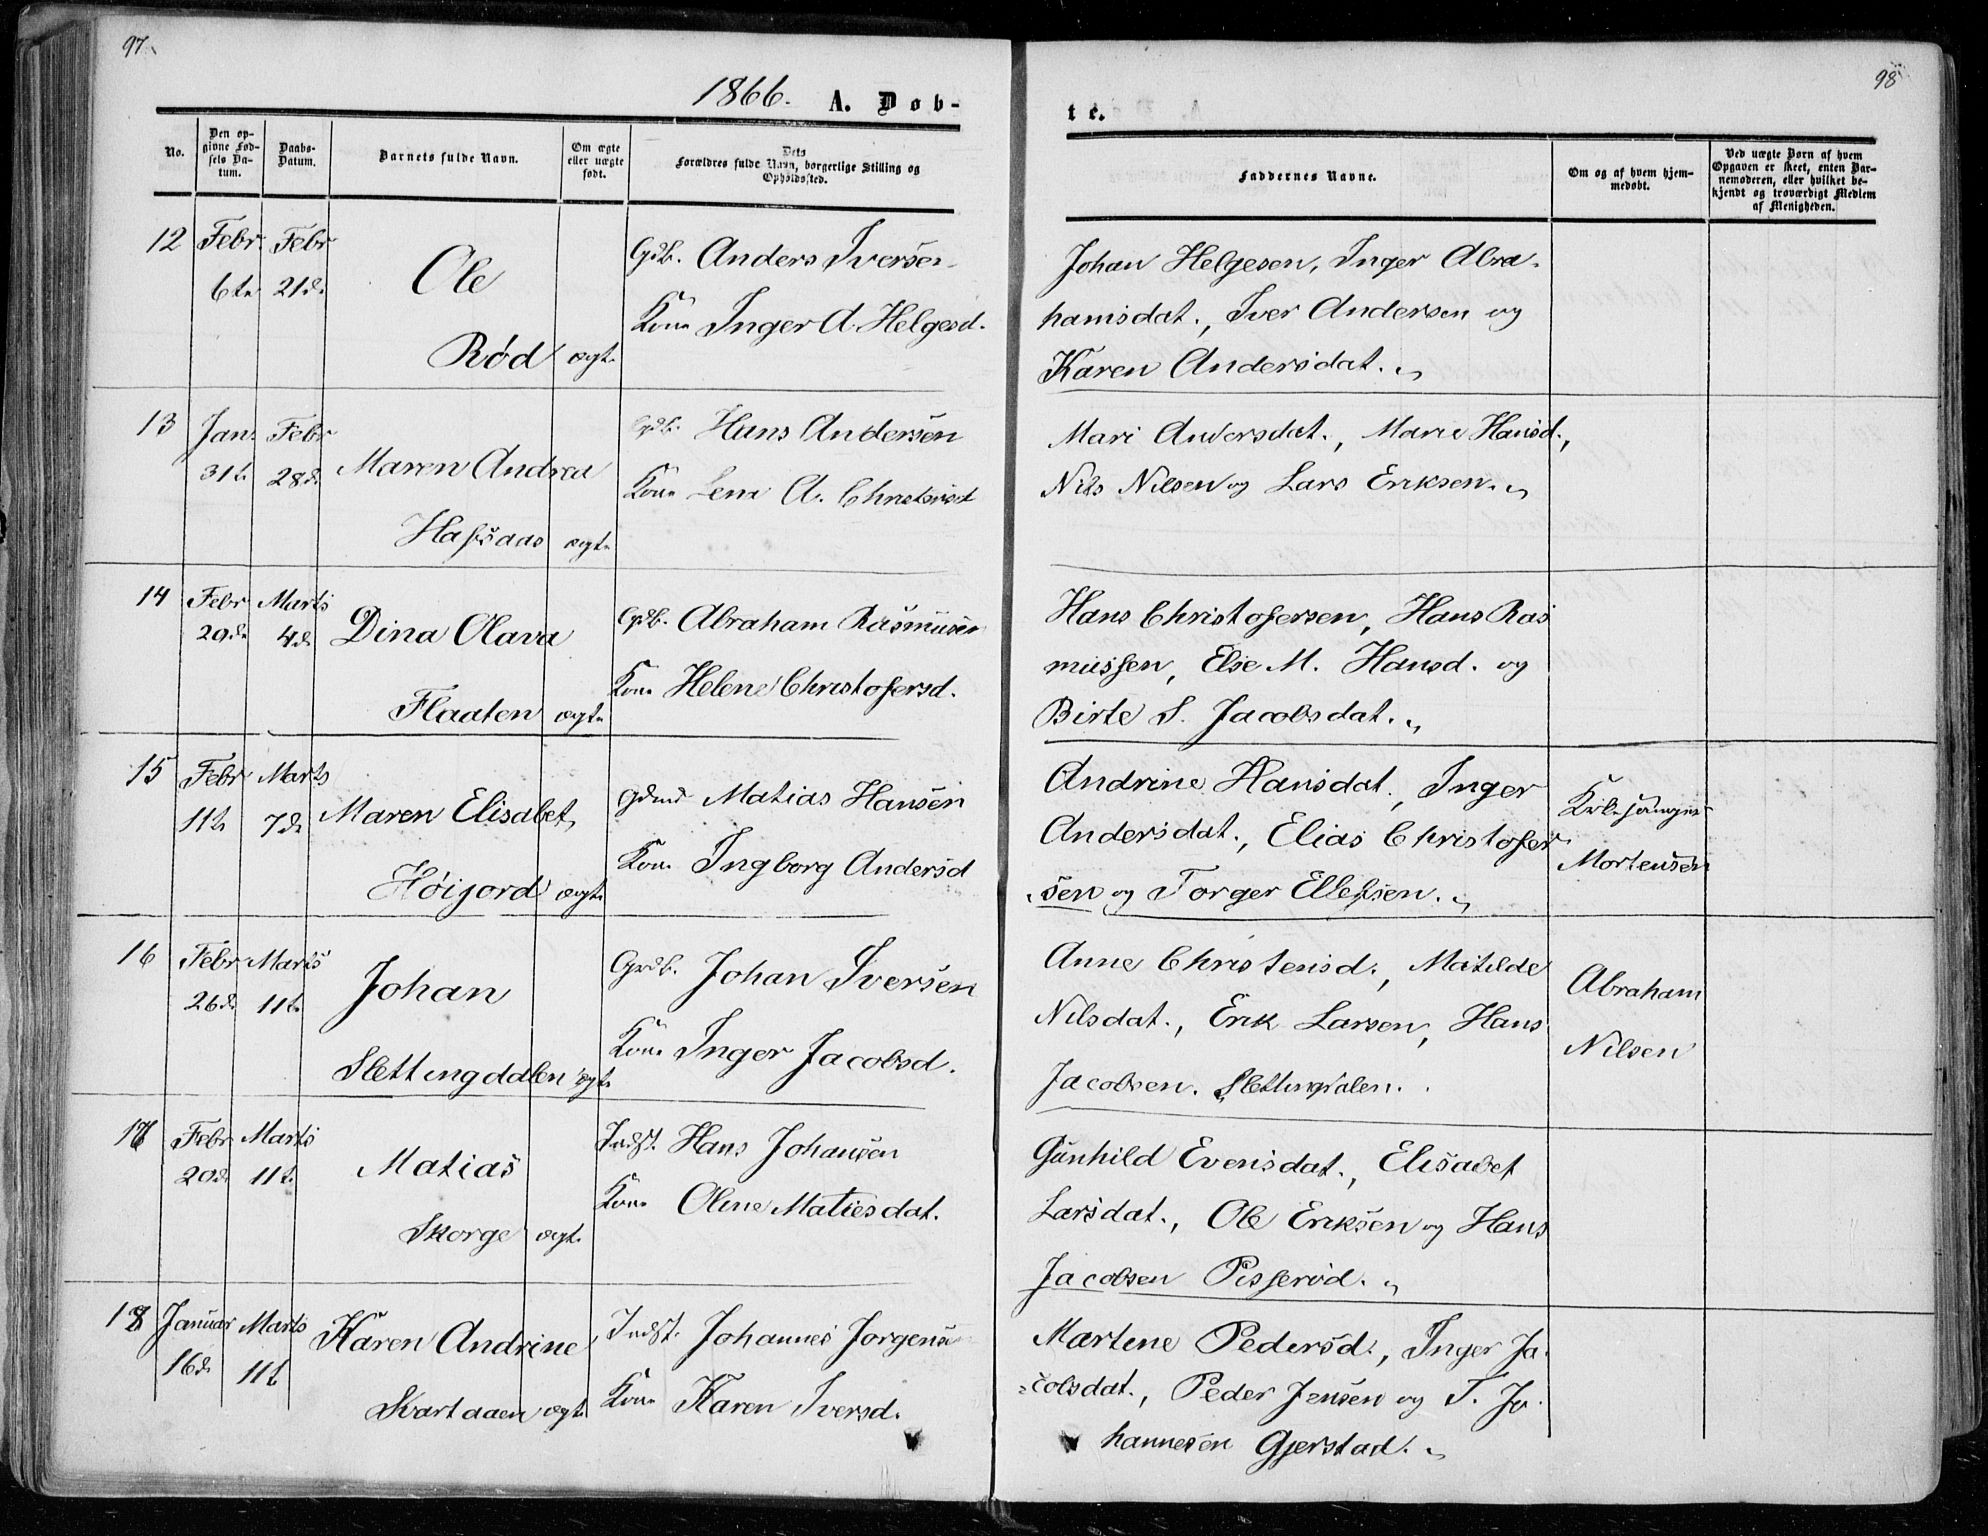 97.
98
1866. A. Døb-
te.
No.
Den op-
givne Fød-
sels Da-
tum.
Daabs-
Datum.
Barnets fulde Navn.
Om ægte
eller uægte
født.
Dets
Forældres fulde Navn, borgerlige Stilling og
Opholdssted.
Faddernes Navne.
Om og af hvem hjem-
medøbt.
Ved uægte Børn af hvem
Opgaven er skeet, enten Bar-
nemoderen, eller hvilket be-
kjendt og troværdigt Medlem
af Menigheden.
12 Febr. Febr
6te 21d.
Ole
Rød ægt.
Gdb. Anders Iversen
Kone Inger A. Helgesd.
Johan Helgesen, Inger Abra-
hamsdat., Iver Andersen og
Karen Andersdat.
13 Jan. Febr
31t. 28d.
Maren Andrea
Hafsaas ægt.
Gdb. Hans Andersen
Kone Lena A.
Mari Andersdat., Marie Hansd.,
Nils Nilsen og Lars Eriksen.
14 Febr Marts
4d.
Dina Olava
Flaaten ægt.
Gdb. Abraham Rasmusen
Kone Helene Christofersd.
Hans Christofersen, Hans Ras
mussen, Else M. Hansd. og
Birte S. Jacobsdat.
15 Febr Marts
11t. 7d.
Maren Elisabet
Høijord ægt.
Gdmd Matias Hansen
Kone Ingborg Andersd
Andrine Hansdat., Inger
Andersdat., Elias Christofer
sen og Torger Ellefsen.
Kirkesanger
Mortensen
16 Febr Marts
26d. 11t.
Johan
Slettingdalen ægt.
Grdb. Johan Iversen
Kone Inger Jacobsd.
Anne Christensd., Matilde
Nilsdat., Erik Larsen, Hans
Jacobsen. Slettingdalen.
Abraham
Nilsen
17 Febr Marts
20d. 11t.
Matias
Skorge ægt.
Indst. Hans Johansen
Kone Oline Matiesdat.
Gunhild Evensdat., Elisabet
Larsdat., Ole Eriksen og Hans
Jacobsen Pisserød.
18 Januar Marts
16d. 11t
Karen Andrine
Svartaaen ægt.
Indst. Johannes Jorgens
Kone Karen Iversd.
Martene Pedersd., Inger Ja-
cobsdat., Peder Jensen og T. Jo-
hannesen Gjerstad.